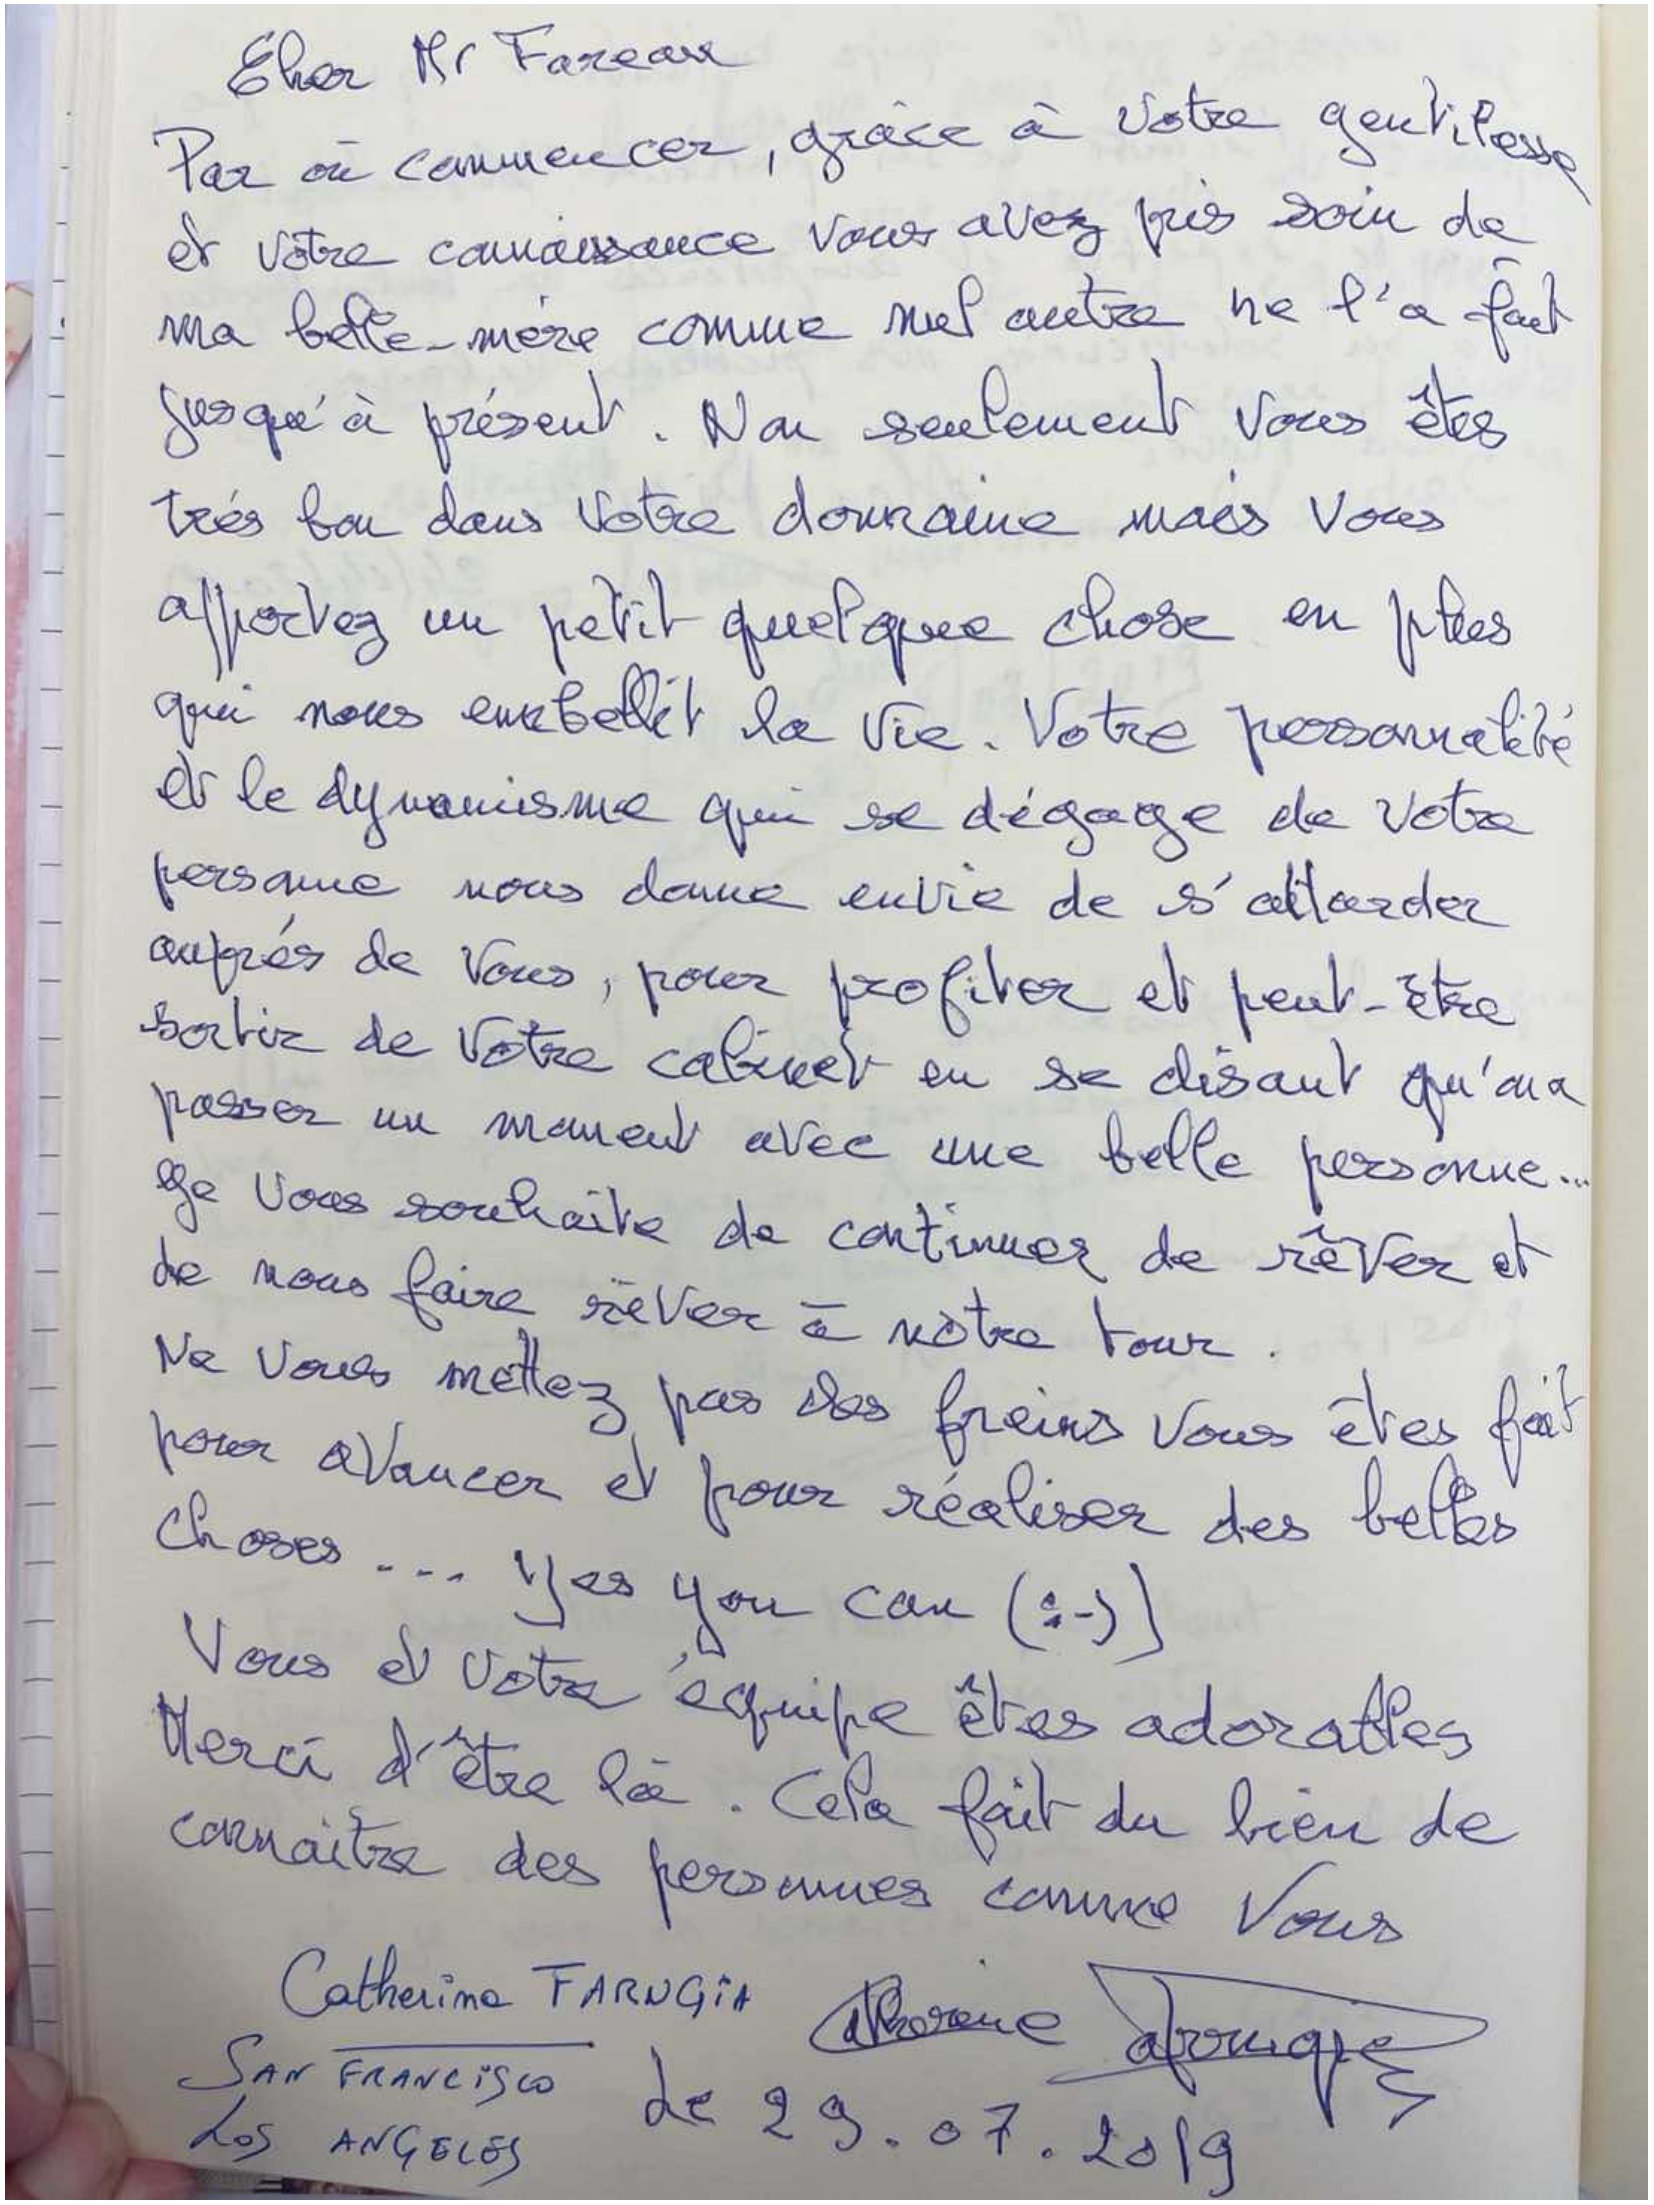 Cher Mr Fareau
Par où commencer, grâce à votre gentilesse
et votre connaissance vous avez pris soin de
ma belle-mère comme nul autre ne l'a fait
jusqu'à présent. Non seulement vous êtes
très bon dans votre domaine mais vous
apportez un petit quelque chose en plus
qui nous embellit la vie. Votre personnalité
et le dynamisme qui se dégage de votre
personne nous donne envie de s'attarder
auprès de vous, pour profiter et peut-être
sortir de votre cabinet en se disant qu'on a
passer un moment avec une belle personne...
Je vous souhaite de continuer de rêver et
de nous faire rêver à nôtre tour.
Ne vous mettez pas des freins vous êtes fait
pour avancer et pour réaliser des belles
choses .... Yes you can (:-))
Vous et votre équipe êtes adorables
Merci d'être là. Cela fait du bien de
connaître des personnes comme vous
Catherine FARUGIA
SAN FRANCISCO
LOS ANGELES
Le 29.07.2019